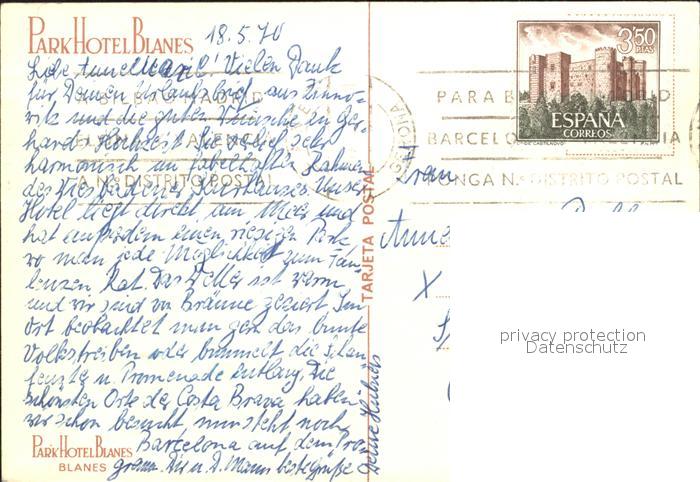 PARK HOTEL BLANES
18.5.70
Liebe Annemarie! Vielen Dank
für Deinen Urlaubsbrief aus Zinno-
witz und die guten Wünsche zu Ger-
hards Hochzeit. Sie verlief sehr
harmonisch im fabelhaften Rahmen
des Kurhauses. Unser
Hotel liegt direkt am Meer und
hat außerdem einen riesigen Park
wo man jede Möglichkeit zum Fau-
lenzen hat. Das Wetter ist warm
und wir sind von Bräune geziert. Im
Ort beobachtet man gern das bunte
Volkstreiben oder bummelt die Schau-
fenster u. Promenade entlang. Die
schönsten Orte der Costa Brava haben
wir schon besucht, nun steht noch
Barcelona auf dem Pro-
gramm. Dir u. D. Mann beste Grüße
Deine
PARK HOTEL BLANES
BLANES
TARJETA POSTAL
3'50
PTAS
ESPAÑA
CORREOS
PARA B
BARCEL
PONGA N.º DISTRITO POSTAL
Frau
Anne
X
privacy protection
Datenschutz